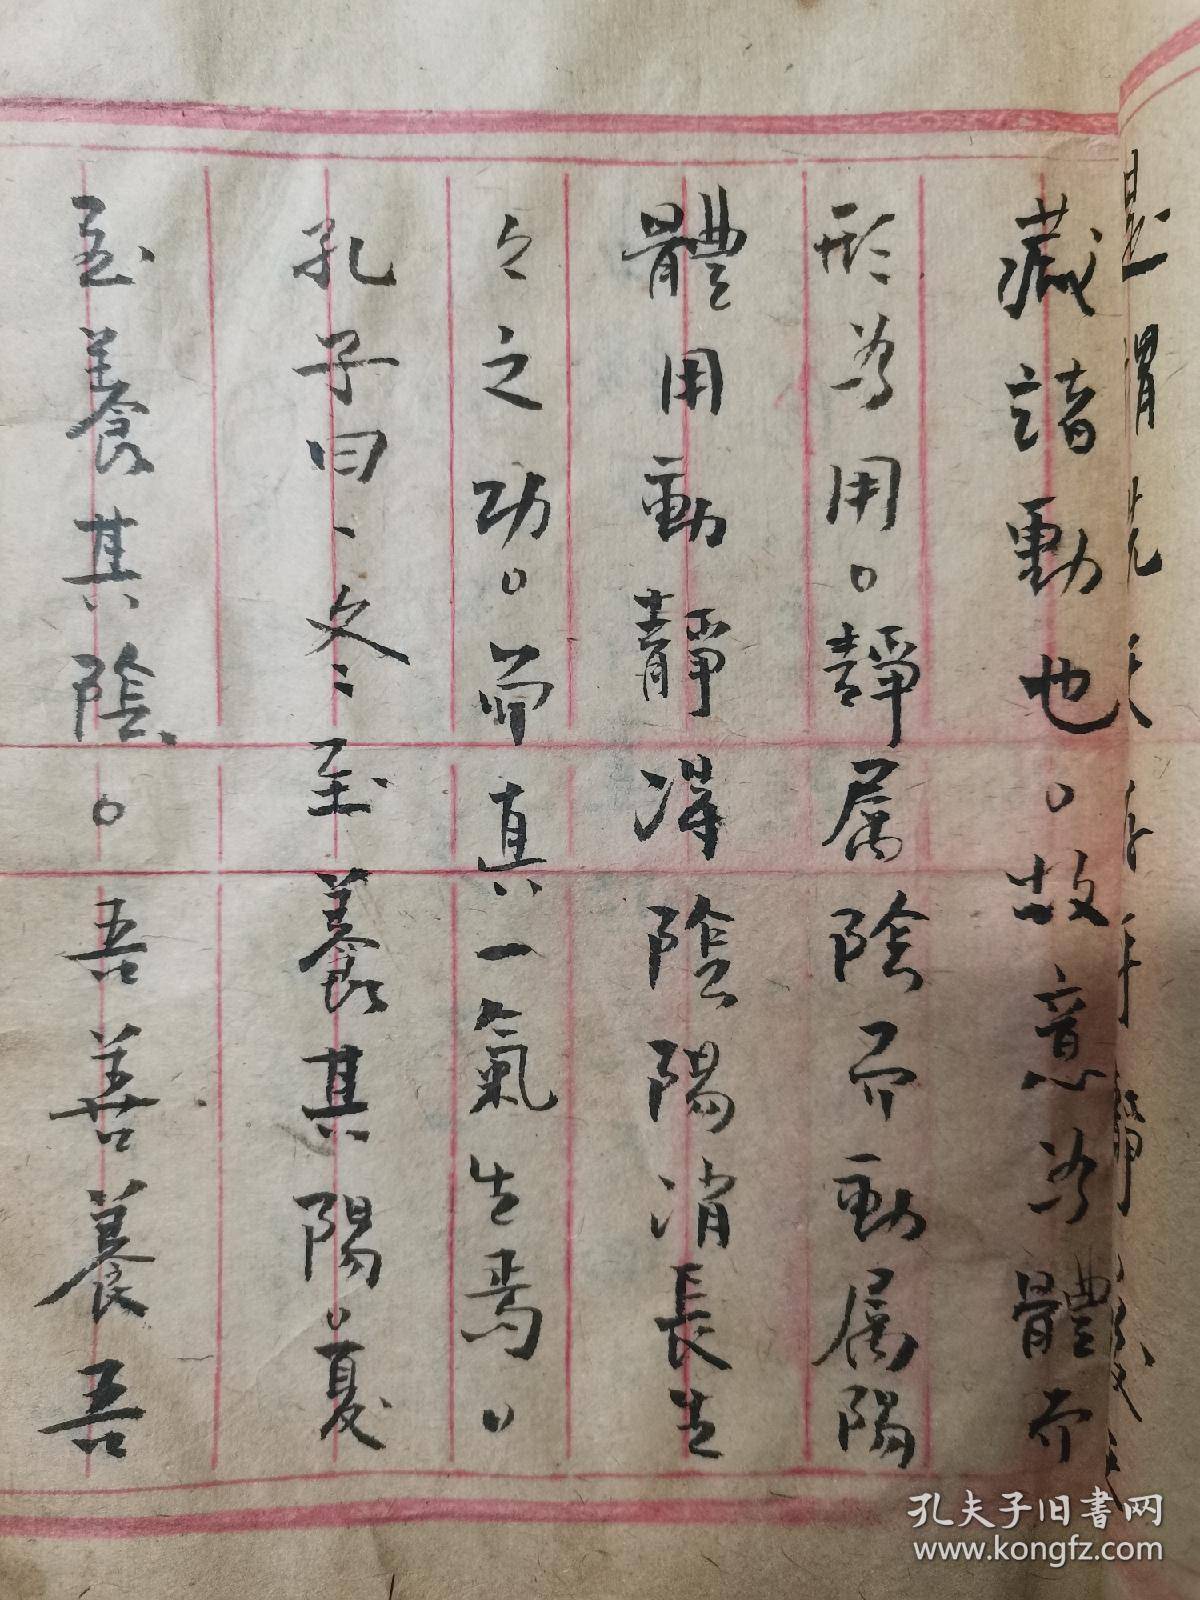 是謂先天
藏諸動也。故意为體而
形为用。靜属陰而動属陽
體用動靜得陰陽消長生
々之功。而真一氣生焉。
孔子曰、冬至養其陽。夏
至養其陰。吾善養吾
孔夫子旧書网
www.kongfz.com